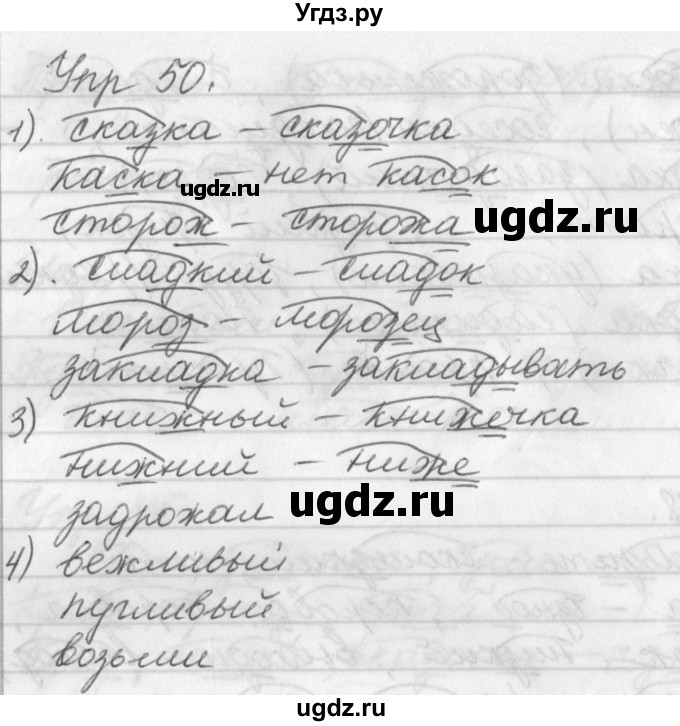 Угдз.ру
Упр 50.
1). сказка – сказочка
каска – нет касок
ugdz.ru
сторож – сторожа
ugdz.ru
2). сладкий – сладок
мороз – морозец
закладка – закладывать
3) книжный – книжечка
нижний – ниже
ugdz.ru
задрожал
4) вежливый
пугливый
возьми
ugdz.ru